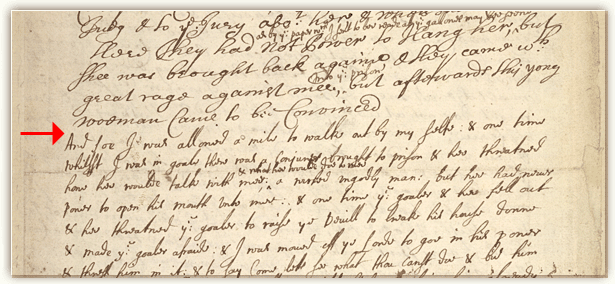 Judg & to ye: Jury
there they had not power to hang her, but
shee was brought back againe & they came with
great rage against mee, but afterwards this yong
wooman Came to bee Convinced
And soe I was allowed a mile to walk out by my selfe: & one time
whilst I was in goale there was a Conjurer brought to prison & hee threatned
how hee woulde talk with mee & what hee woulde doe to mee: a wicked ungodly man: but hee had never
power to open his mouth unto mee: & one time ye goaler & hee fell out
& hee threatned ye goaler to raise ye Devill to breake his house downe
& made ye goaler afraide: & I was moved off ye Lorde to goe in his power
& thresh him in it: & to say Come, lets see what thou canst doe & bid him